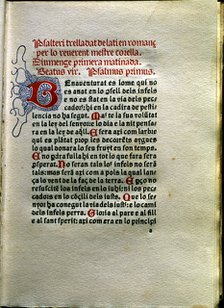 Psalteri trelladat de lati en romanç
per lo reverent mestre corella.
Diumenge primera matinada.
Beatus vir. Psalmus primus.
BEnaventurat es lome qui no
es anat en lo consell dels infels
e no es stat en la via dels pec
cadors: ni en la cadira de pesti
lencia no ha segut. Mas te la sua volũtat
en la ley del senyor: e de dia e de nit pensara
en la ley de aquell. E sera axi com larbre
qui es plãtat prop les decorrẽts aygues
lo qual donara lo seu fruyt en son temps.
E no perdra fulla: hi en tot lo que fara sera
prosperat. No seran tals lo infels no seran
tals: mas serã axi com a pols la qual lan
ça lo vent de la faç de la terra. E per ço no
resuscitaran los infels en lo juhi: ni los pec
cadors en lo cõcili dels justs. Que lo se
nyor ha conegut la via dels justs: e lo cami
dels infels perra. Gloria al pare e al fill
e al sant sperit: axi com era en lo principi
a